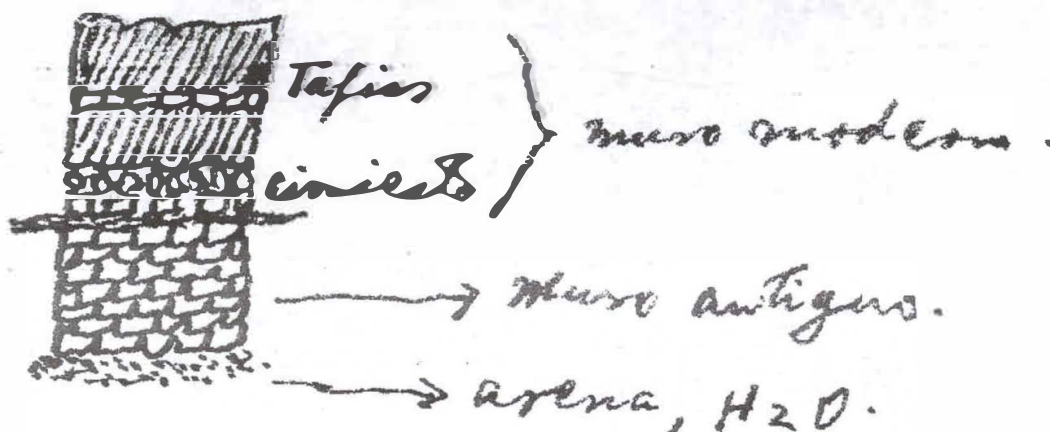 Tapias
cimiento
muro moderno.
muro antiguo.
arena, H2O.